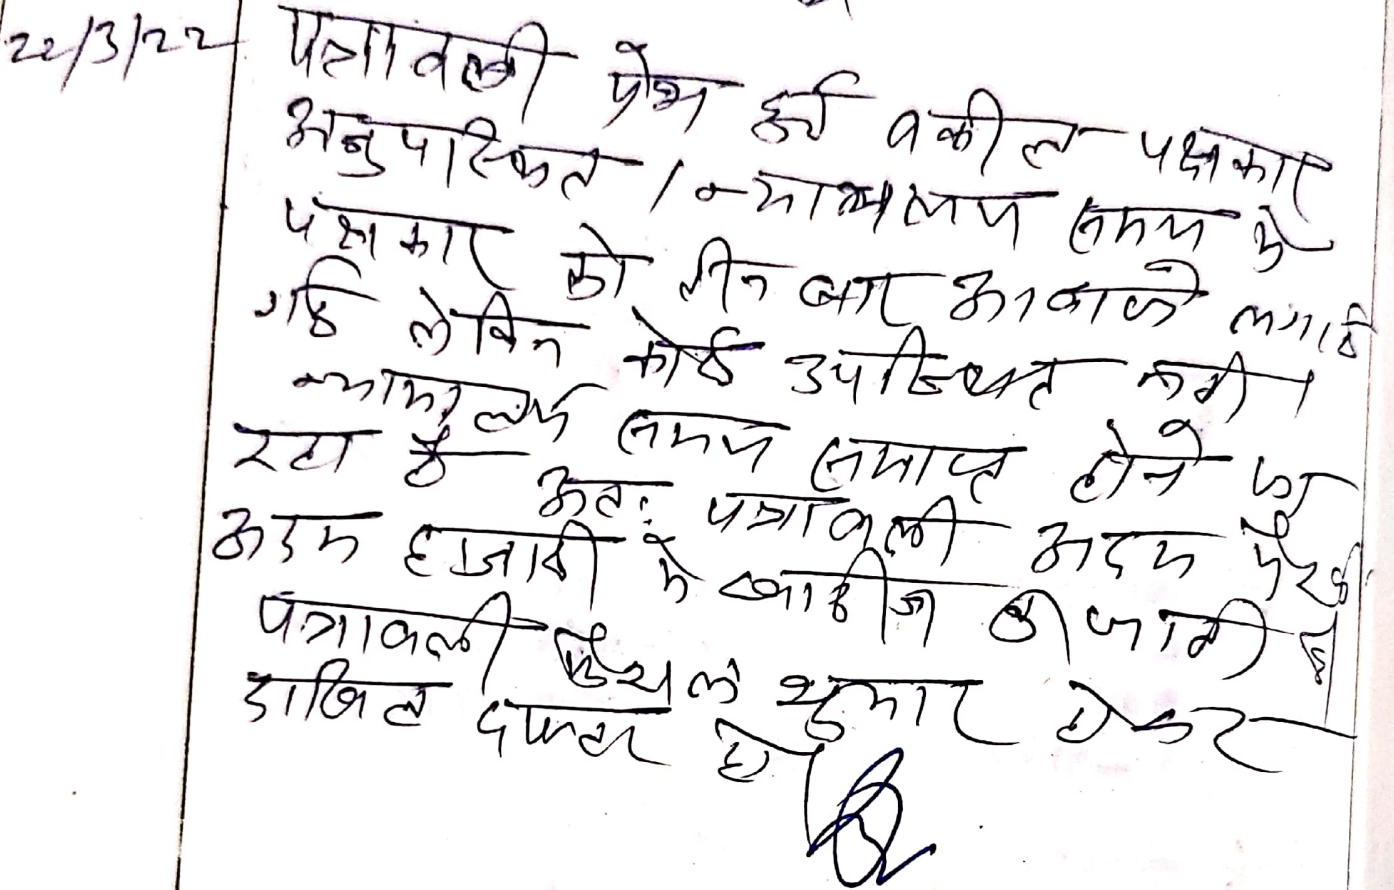 22/3/22 पत्रावली पेश हुई वकील पक्षकार
अनुपस्थित । न्यायालय समय मे
पक्षकार को तीन बार आवाजे लगाई
गई लेकिन कोई उपस्थित नही ।
न्यायालय समय समाप्त होने जा
रहा है अतः पत्रावली अदम पैरवी
अदम हाजरी मे खारीज की जाती है
पत्रावली फैसले शुमार होकर
दाखिल दफ्तर हो